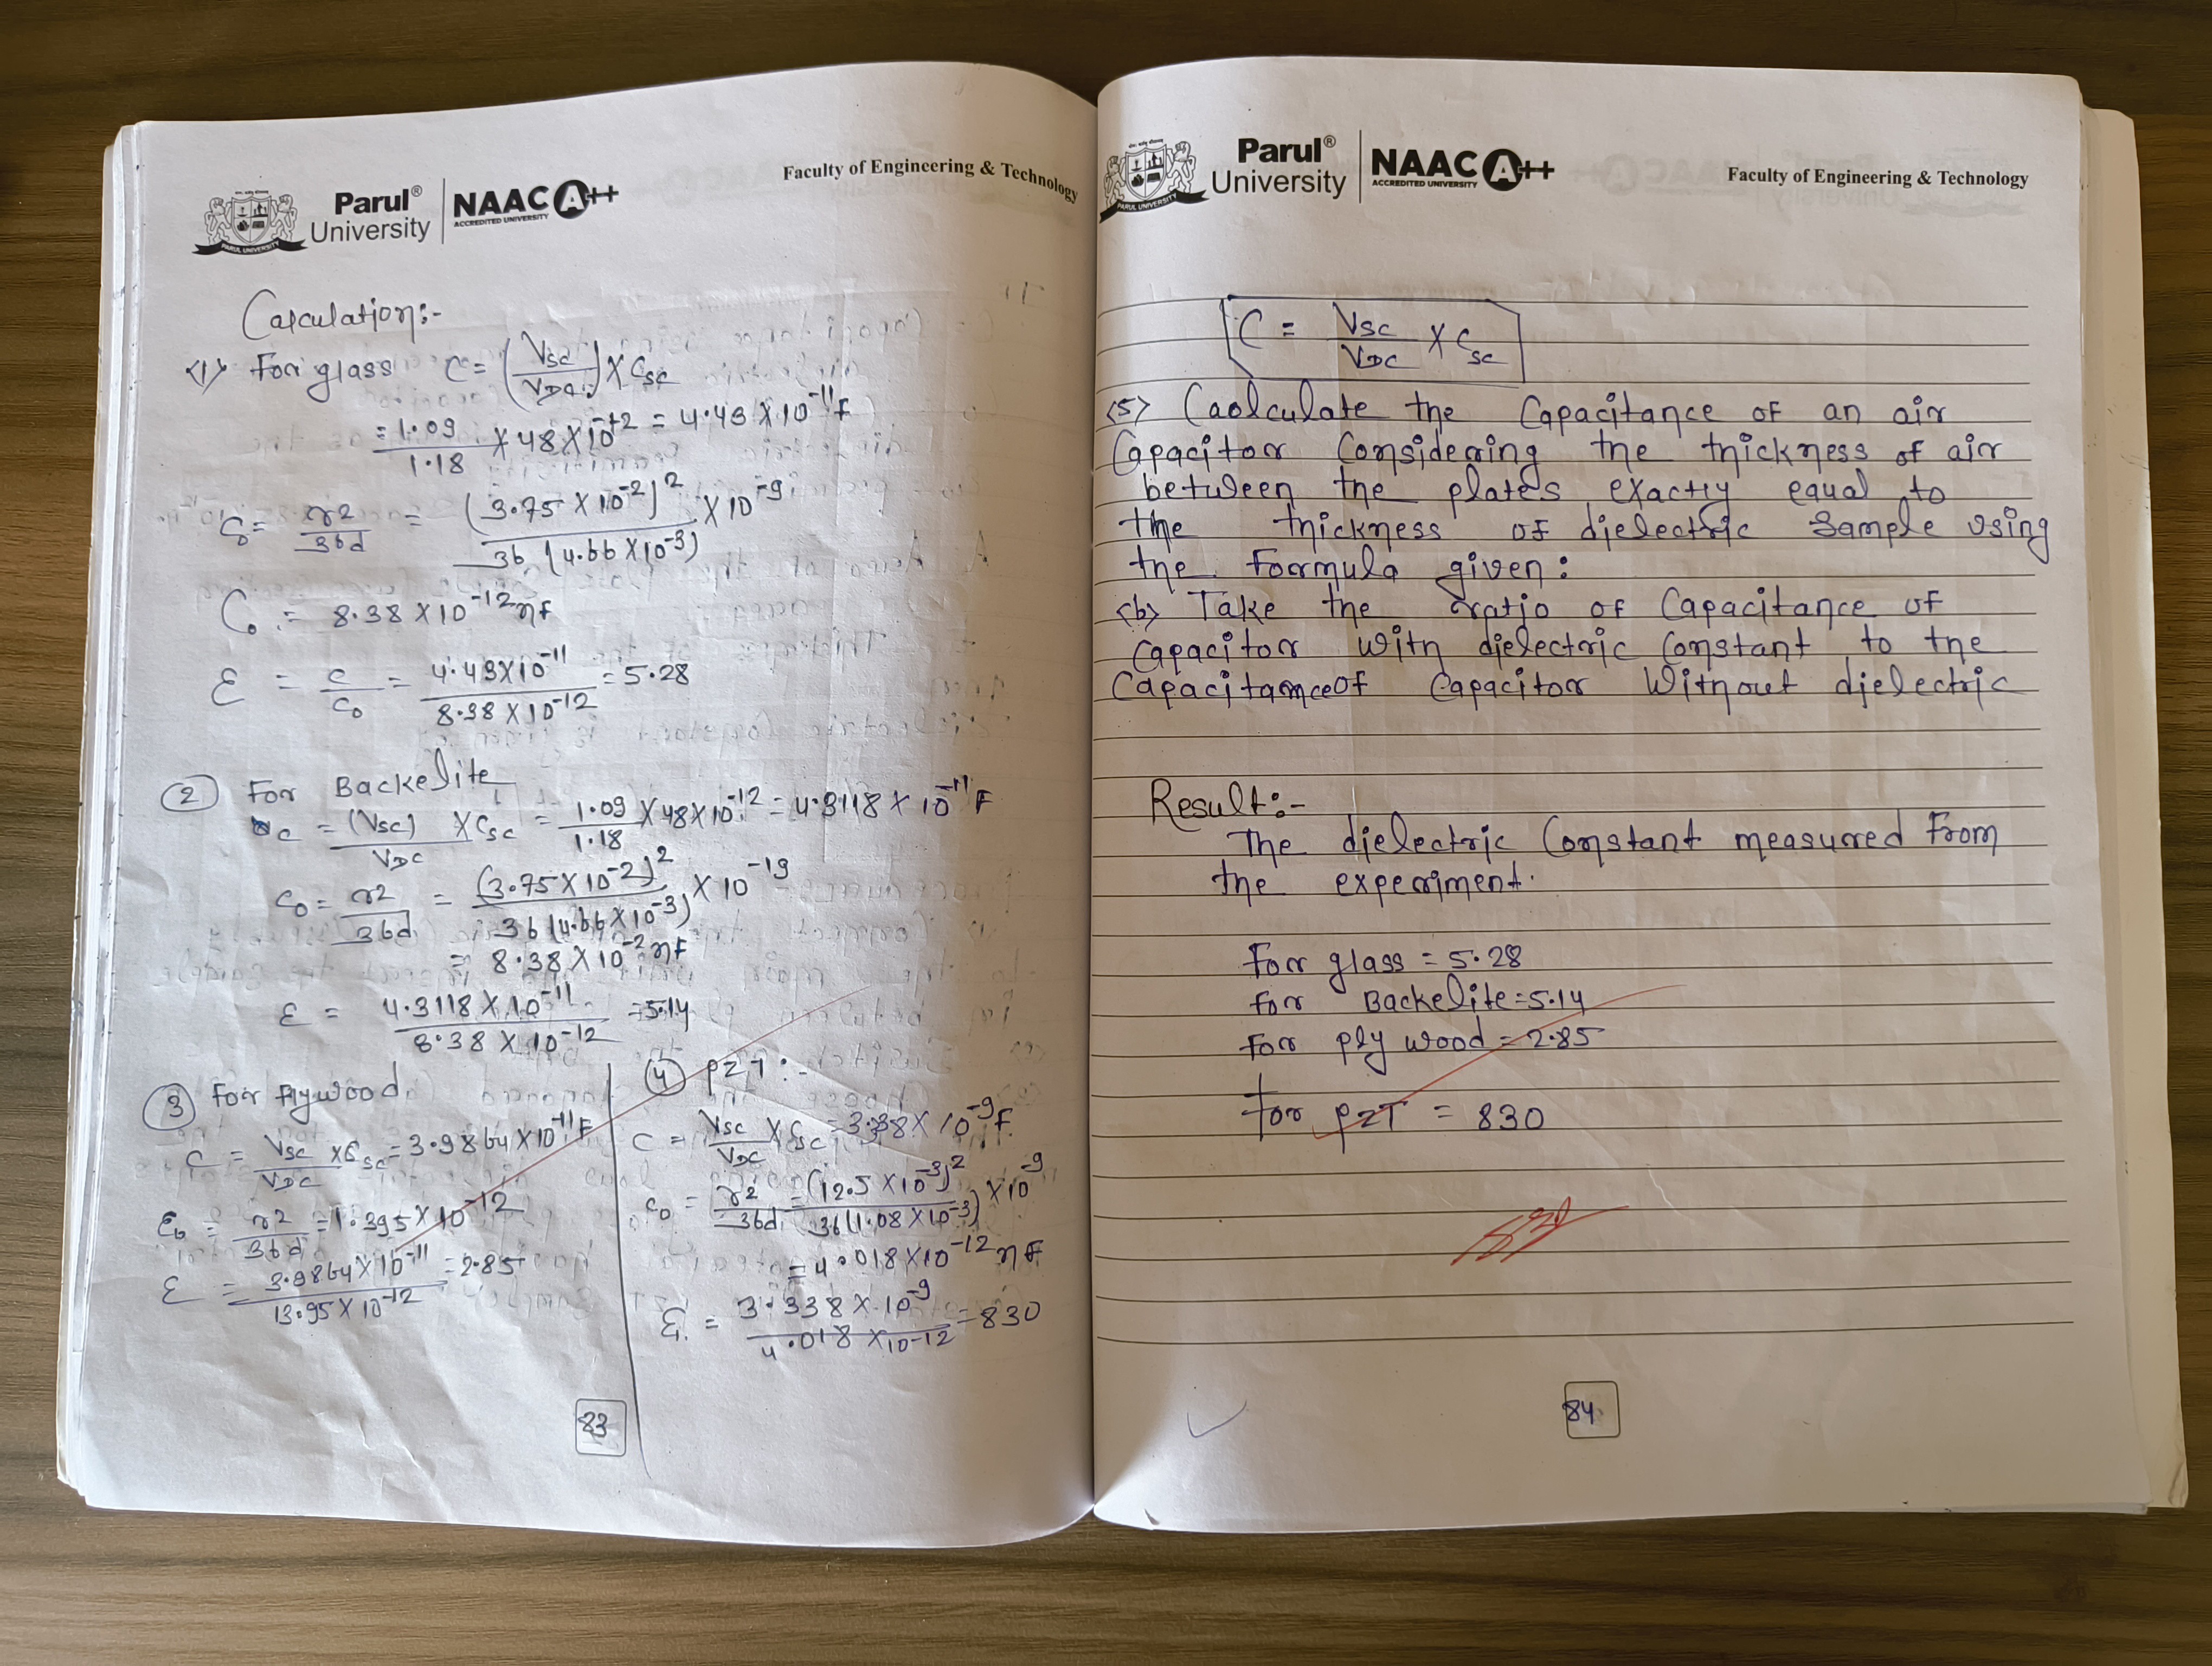 Parul® University
NAAC A++
ACCREDITED UNIVERSITY
PARUL UNIVERSITY
Faculty of Engineering & Technology
Calculation:-
<1> For glass C = (Vsc / VDC) X Csc
= 1.09 / 1.18 X 48 X 10^-12 = 4.43 X 10^-11 F
C0 = r2 / 36d = (3.75 X 10^-2)^2 / 36 (4.66 X 10^-3) X 10^-9
C0 = 8.38 X 10^-12 nF
ε = C / C0 = 4.43 X 10^-11 / 8.38 X 10^-12 = 5.28
2 For Backelite
C = (Vsc) / VDC X Csc = 1.09 / 1.18 X 48 X 10^-12 = 4.3118 X 10^-11 F
C0 = r2 / 36d = (3.75 X 10^-2)^2 / 36 (4.66 X 10^-3) X 10^-19
= 8.38 X 10^-2 nF
ε = 4.3118 X 10^-11 / 8.38 X 10^-12 = 5.14
3 For Plywood
C = Vsc / VDC X Csc = 3.9864 X 10^-11 F
ε0 = r2 / 36d = 1.395 X 10^-12
ε = 3.9864 X 10^-11 / 13.95 X 10^-12 = 2.85
4 PZT :-
C = Vsc / VDC X Csc = 3.38 X 10^-9 F
C0 = r2 / 36d = (12.5 X 10^-3)^2 / 36 (1.08 X 10^-3) X 10^-9
= 4.018 X 10^-12 nF
ε = 3.338 X 10^-9 / 4.018 X 10^-12 = 830
83
Parul® University
NAAC A++
ACCREDITED UNIVERSITY
PARUL UNIVERSITY
Faculty of Engineering & Technology
C = Vsc / VDC X Csc
<5> Caolculate the Capacitance of an air
Capacitor Considering the thickness of air
between the plates exactly equal to
the thickness of dielectric Sample Using
the Formula given:
<b> Take the ratio of Capacitance of
Capacitor With dielectric Constant to the
Capacitance of Capacitor Without dielectric
Result:-
The dielectric Constant measured From
the experiment.
For glass = 5.28
for Backelite = 5.14
For ply wood = 2.85
for PZT = 830
84